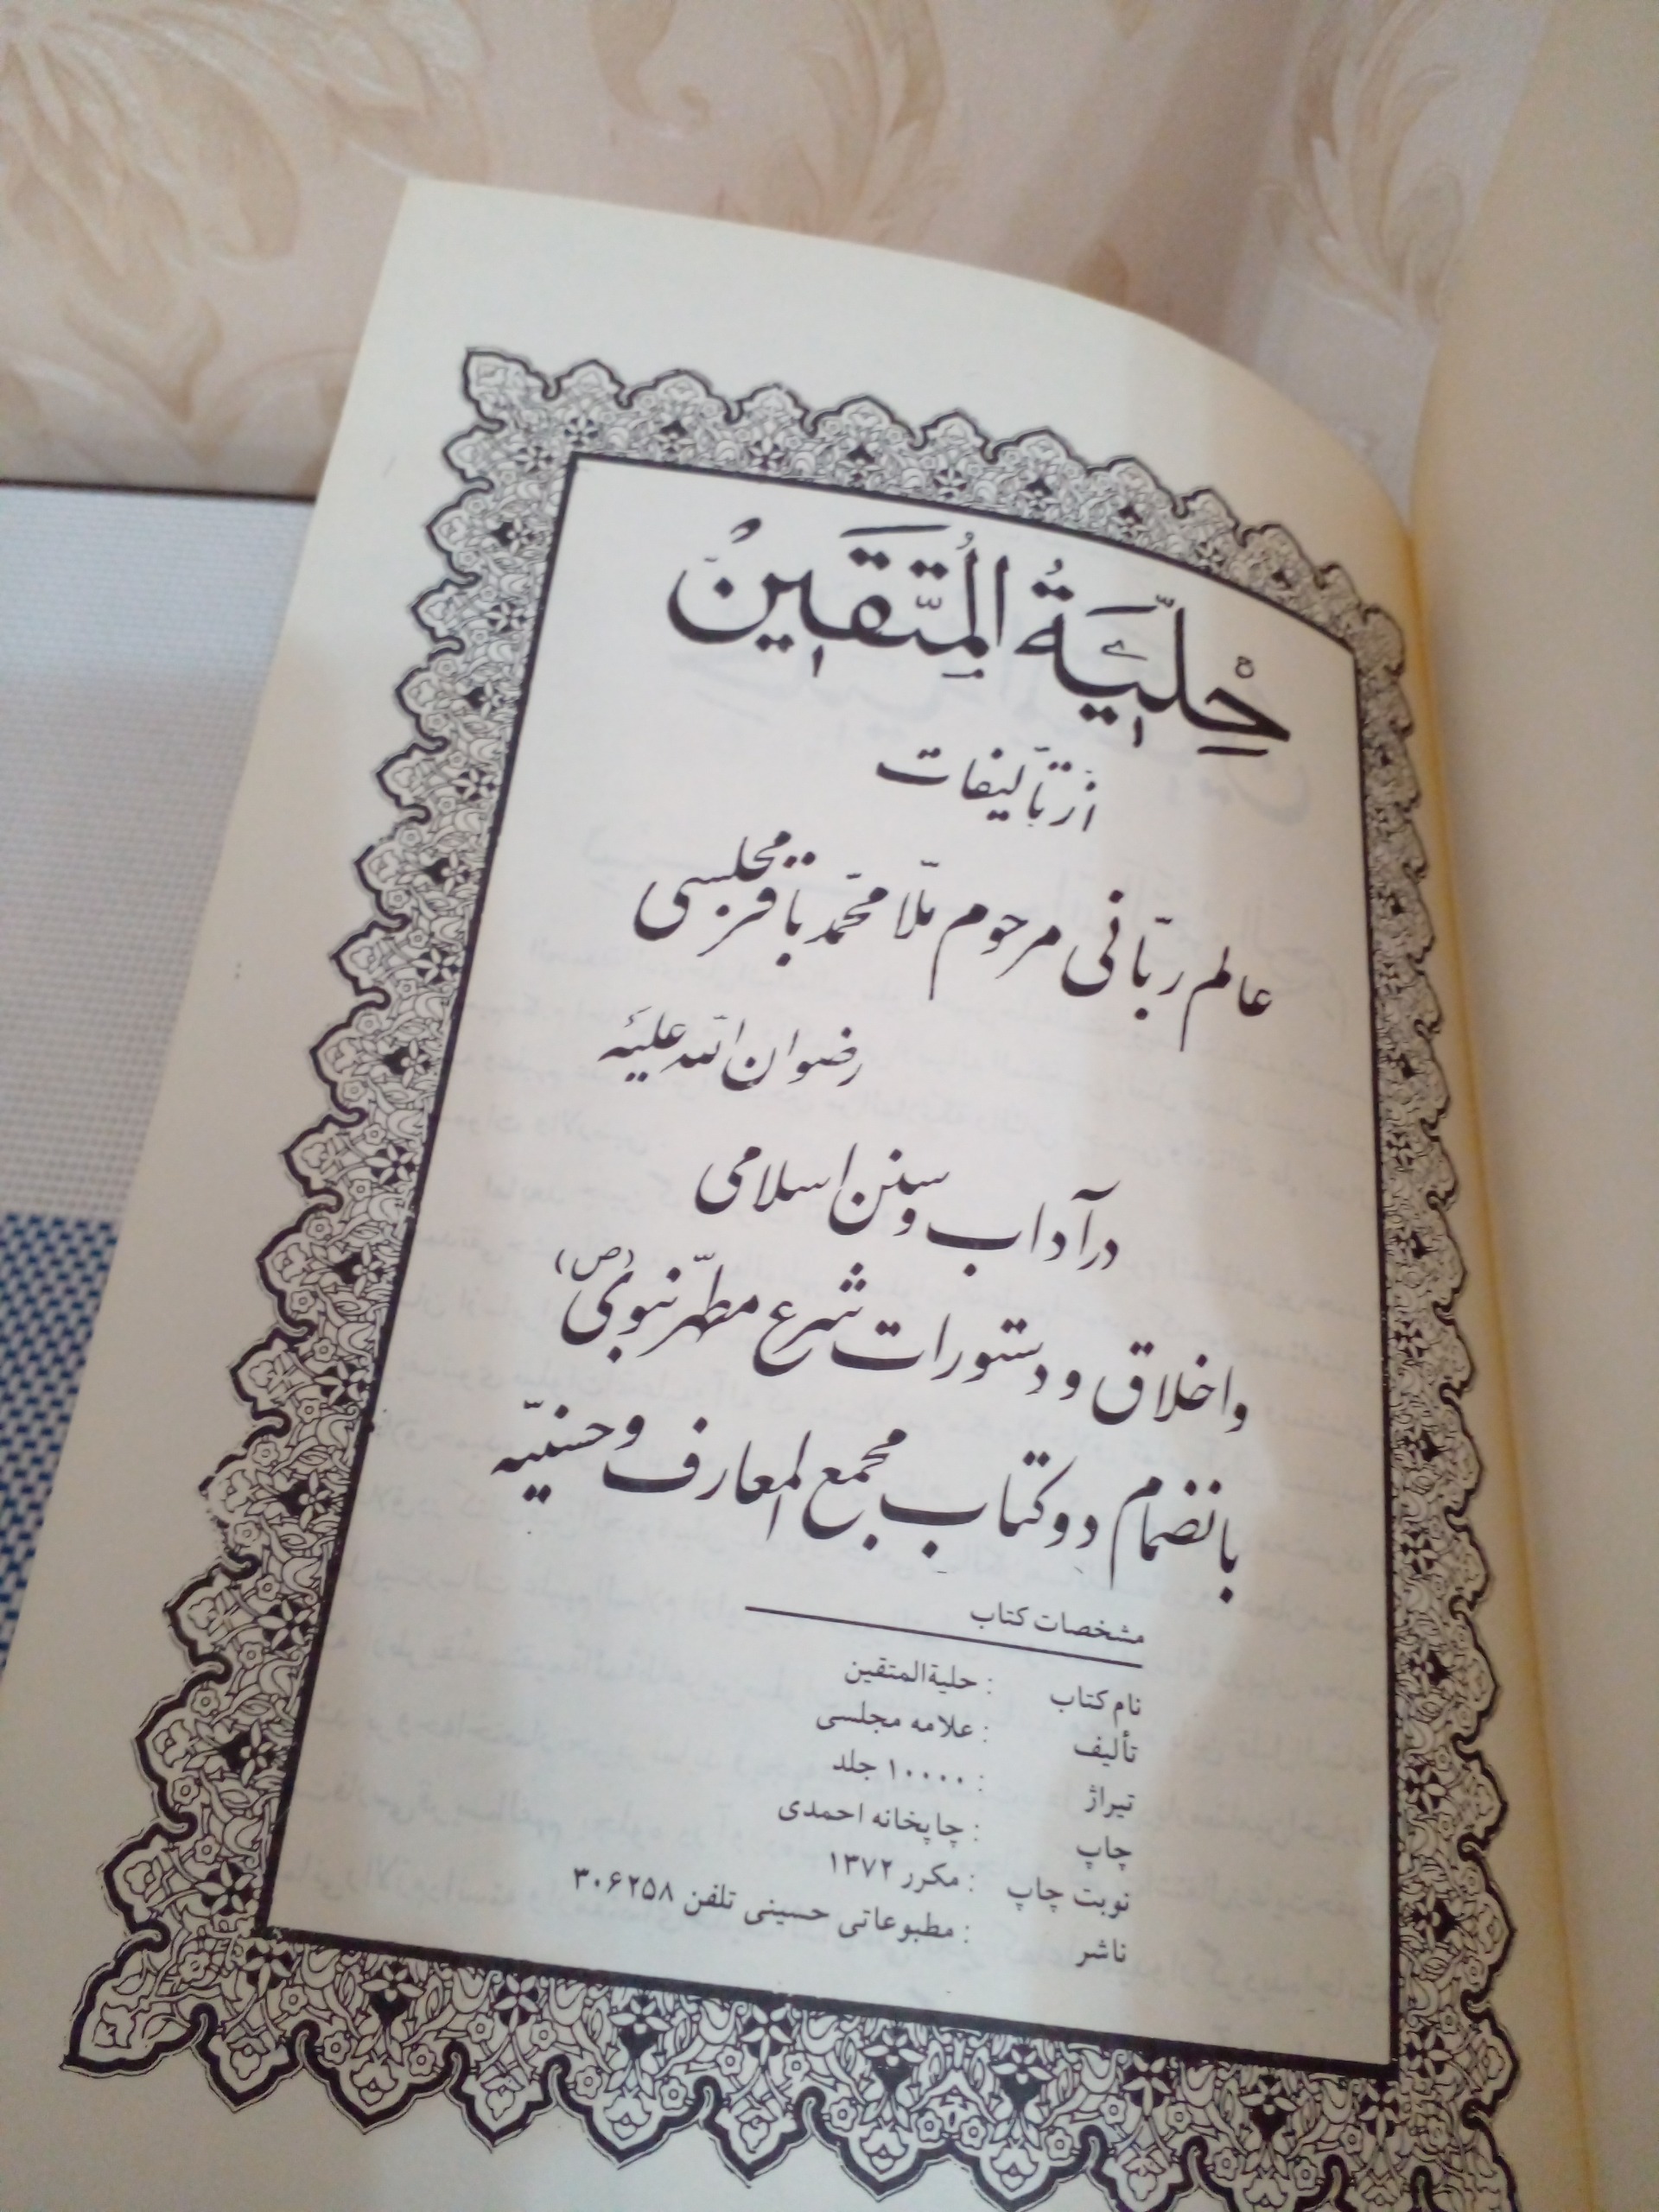 حِلْیَةُ الْمُتَّقِینْ
از تألیفات
عالم ربّانی مرحوم ملّا محمّد باقر مجلسی
رضوان الله علیه
در آداب و سنن اسلامی
و اخلاق و دستورات شرع مطهّر نبوی (ص)
بانضمام دو کتاب مجمع المعارف و حسنیّه
مشخصات کتاب
نام کتاب : حلیةالمتقین
تألیف : علامه مجلسی
تیراژ : ۱۰۰۰۰ جلد
چاپ : چاپخانه احمدی
نوبت چاپ : مکرر ۱۳۷۲
ناشر : مطبوعاتی حسینی تلفن ۳۰۶۲۵۸